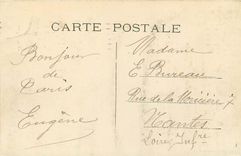 CARTE POSTALE
Bonjour
de
Paris
Eugène
Madame
E. Bureau
Rue de la
Nantes
(Loire Infre